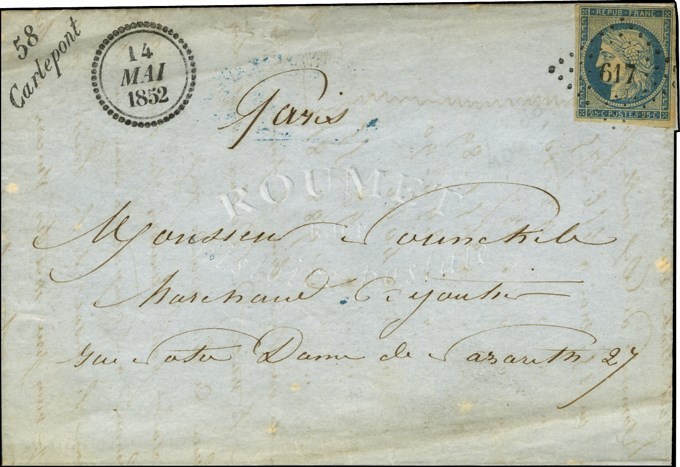 58
Carlepont
14
MAI
1852
REPUB FRANC
617
25 · C POSTES 25 · C
Paris
ROUMET
Monsieur
Marchand
rue Notre Dame de Nazareth 27